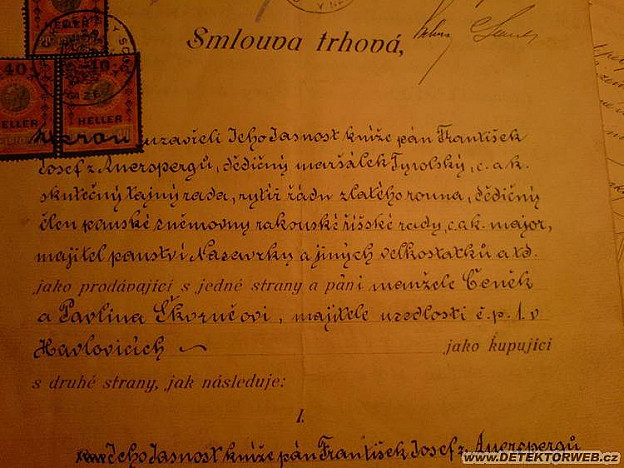 Smlouva trhová,
40
HELLER
10
HELLER
kterou uzavřeli Jeho Jasnost kníže pán František
Josef z Auerspergů, dědičný maršálek Tyrolský, c. a k.
skutečný tajný rada, rytíř řádu zlatého rouna, dědičný
člen panské sněmovny rakouské říšské rady, c. a k. major,
majitel panství Nasavrky a jiných velkostatků atd.
jako prodávající s jedné strany a páni manželé Čeněk
a Pavlína Škorničovi, majitelé usedlosti č. p. 1. v
Havlovicích jako kupující
s druhé strany, jak následuje:
I.
Jeho Jasnost kníže pán František Josef z Auerspergů
www.DETEKTORWEB.cz